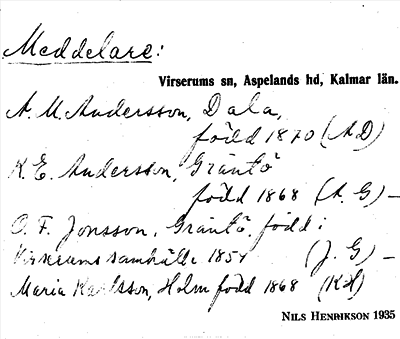 Meddelare:
Virserums sn, Aspelands hd, Kalmar län.
A. M. Andersson, Dala,
född 1870 (A D)
K. E. Andersson, Gräntö
född 1868 (A. G) –
O. F. Jonsson, Gräntö, född i
Virserums samhälle 1851 (J. G) –
Maria Karlsson, Holm född 1868 (K H)
NILS HENRIKSON 1935